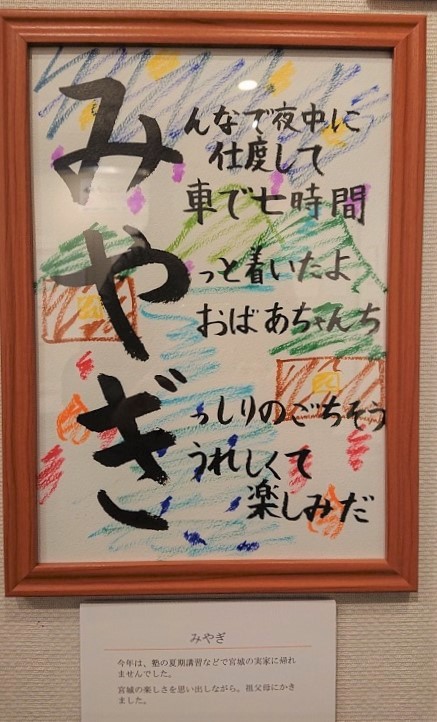 みんなで夜中に
仕度して
車で七時間
やっと着いたよ
おばあちゃんち
ぎっしりのごちそう
うれしくて
楽しみだ
みやぎ
今年は、塾の夏期講習などで宮城の実家に帰れ
ませんでした。
宮城の楽しさを思い出しながら。祖父母にかき
ました。